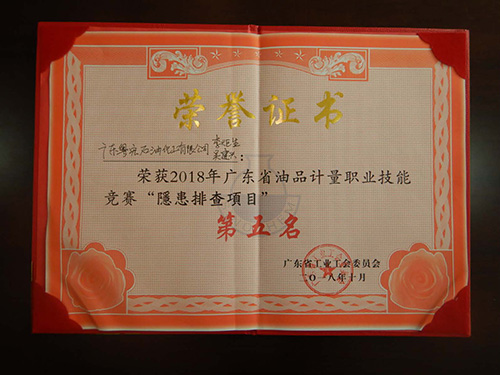 荣誉证书
广东粤宏石油化工有限公司
吴建兴：
荣获2018年广东省油品计量职业技能
竞赛“隐患排查项目”
第五名
广东省工业工会委员会
二〇一八年十月